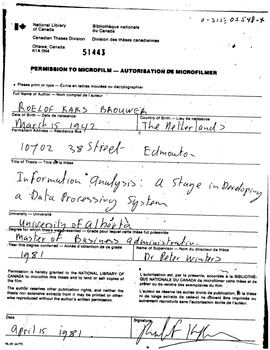 0-315-03548-4
National Library of Canada
Bibliothèque nationale du Canada
Canadian Theses Division
Division des thèses canadiennes
Ottawa, Canada
K1A 0N4
51443
PERMISSION TO MICROFILM — AUTORISATION DE MICROFILMER
• Please print or type — Écrire en lettres moulées ou dactylographier
Full Name of Author — Nom complet de l'auteur
ROELOF KARS BROUWER
Date of Birth — Date de naissance
Country of Birth — Lieu de naissance
March 15 1942
The Netherlands
Permanent Address — Résidence fixe
10702 38 Street Edmonton
Title of Thesis — Titre de la thèse
Information Analysis: A Stage in Developing
a Data Processing System
University — Université
University of Alberta
Degree for which thesis was presented — Grade pour lequel cette thèse fut présentée
Master of Business Administration
Year this degree conferred — Année d'obtention de ce grade
Name of Supervisor — Nom du directeur de thèse
1981
Dr Peter Winters
Permission is hereby granted to the NATIONAL LIBRARY OF CANADA to microfilm this thesis and to lend or sell copies of the film.
L'autorisation est, par la présente, accordée à la BIBLIOTHÈQUE NATIONALE DU CANADA de microfilmer cette thèse et de prêter ou de vendre des exemplaires du film.
The author reserves other publication rights, and neither the thesis nor extensive extracts from it may be printed or otherwise reproduced without the author's written permission.
L'auteur se réserve les autres droits de publication; ni la thèse ni de longs extraits de celle-ci ne doivent être imprimés ou autrement reproduits sans l'autorisation écrite de l'auteur.
Date
Signature
April 15 1981